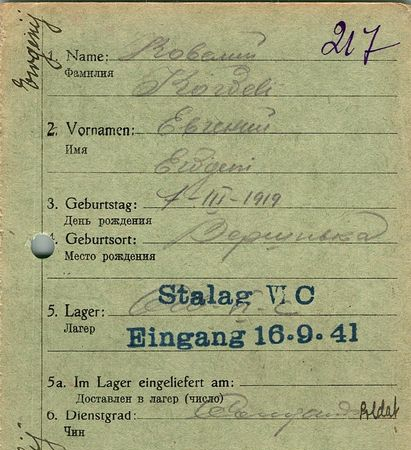 217
Ewgenij
1. Name:
Фамилия
2. Vornamen: Евгений
Имя
Ewgeni
3. Geburtstag: 1-III-1919
День рождения
4. Geburtsort:
Место рождения
Stalag VI C
5. Lager:
Лагер
Eingang 16.9.41
5a. Im Lager eingeliefert am:
Доставлен в лагер (число)
6. Dienstgrad: Soldat
Чин